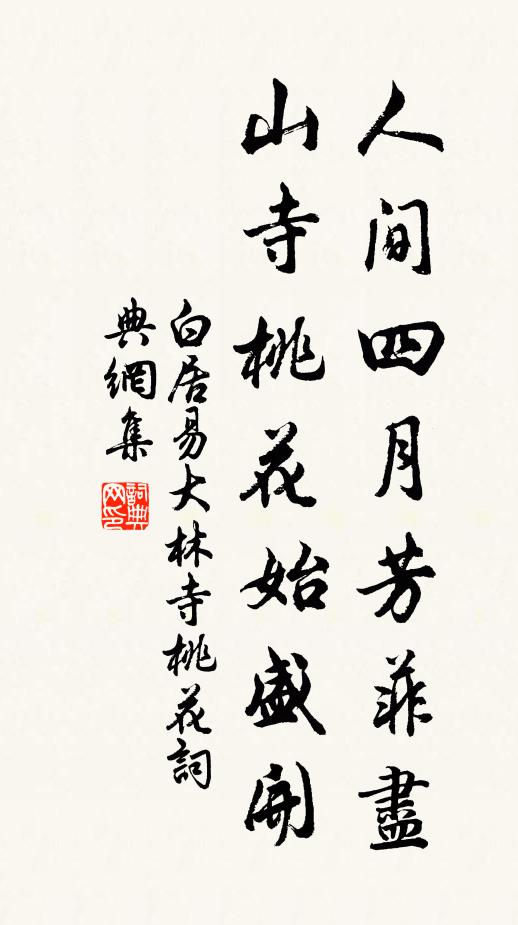 人間四月芳菲盡
山寺桃花始盛開
白居易大林寺桃花詞
典網集
詞典網印